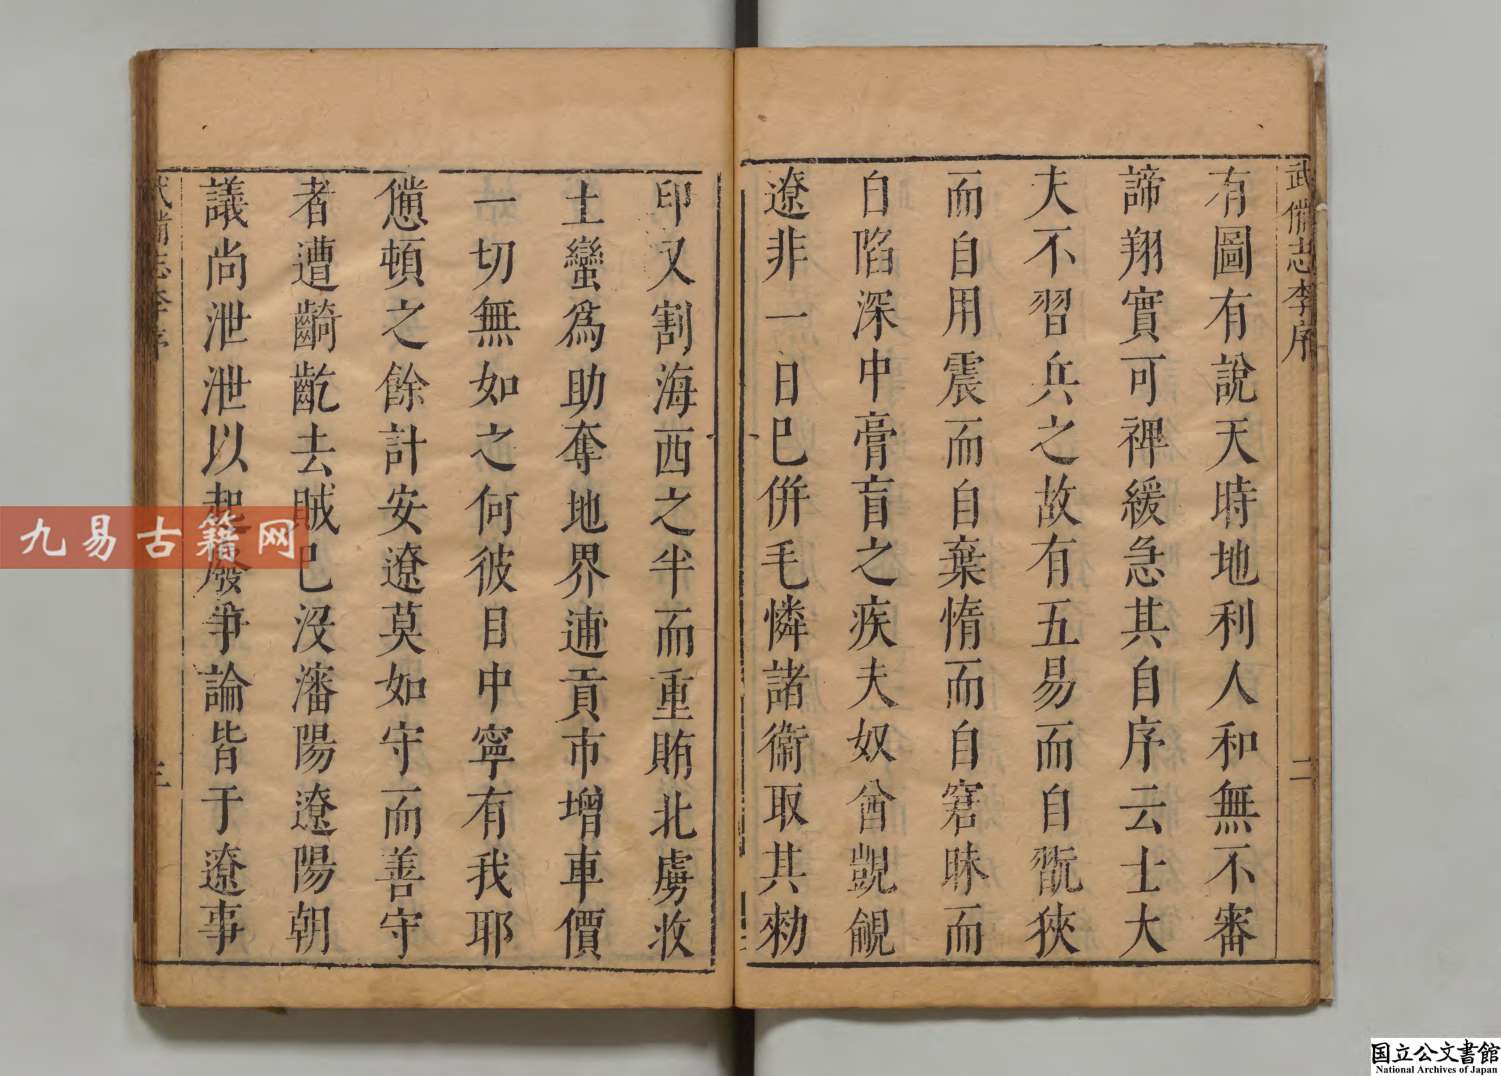 武備志李序
二
有圖有說天時地利人和無不審
諦翔實可裨緩急其自序云士大
夫不習兵之故有五易而自翫狹
而自用震而自棄惰而自窘昧而
自陷深中膏肓之疾夫奴酋覬覦
遼非一日巳併毛憐諸衞取其勑
印又割海西之半而重賄北虜收
土蠻為助奪地界逋貢市增車價
一切無如之何彼目中寧有我耶
憊頓之餘計安遼莫如守而善守
者遭齮齕去賊已沒瀋陽遼陽朝
議尚泄泄以起廢爭論皆于遼事
武備志李序
三
九易古籍网
国立公文書館
National Archives of Japan